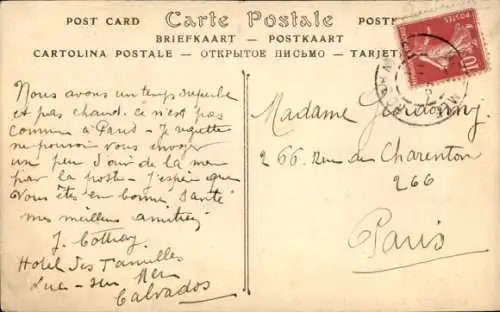 POST CARD Carte Postale POSTK
BRIEFKAART — POSTKAART
CARTOLINA POSTALE — ОТКРЫТОЕ ПИСЬМО — TARJET
POSTES
10
Nous avons un temps superbe
et pas chaud. Ce n'est pas
comme à Paris — Je regrette
ne pouvoir vous envoyer
un peu d'air de la mer
par la poste — J'espère que
Vous êtes en bonne santé
mes meilleures amitiés
J.
Hotel des Familles
Luc-sur Mer
Calvados
Madame
266 Rue de Charenton
266
Paris